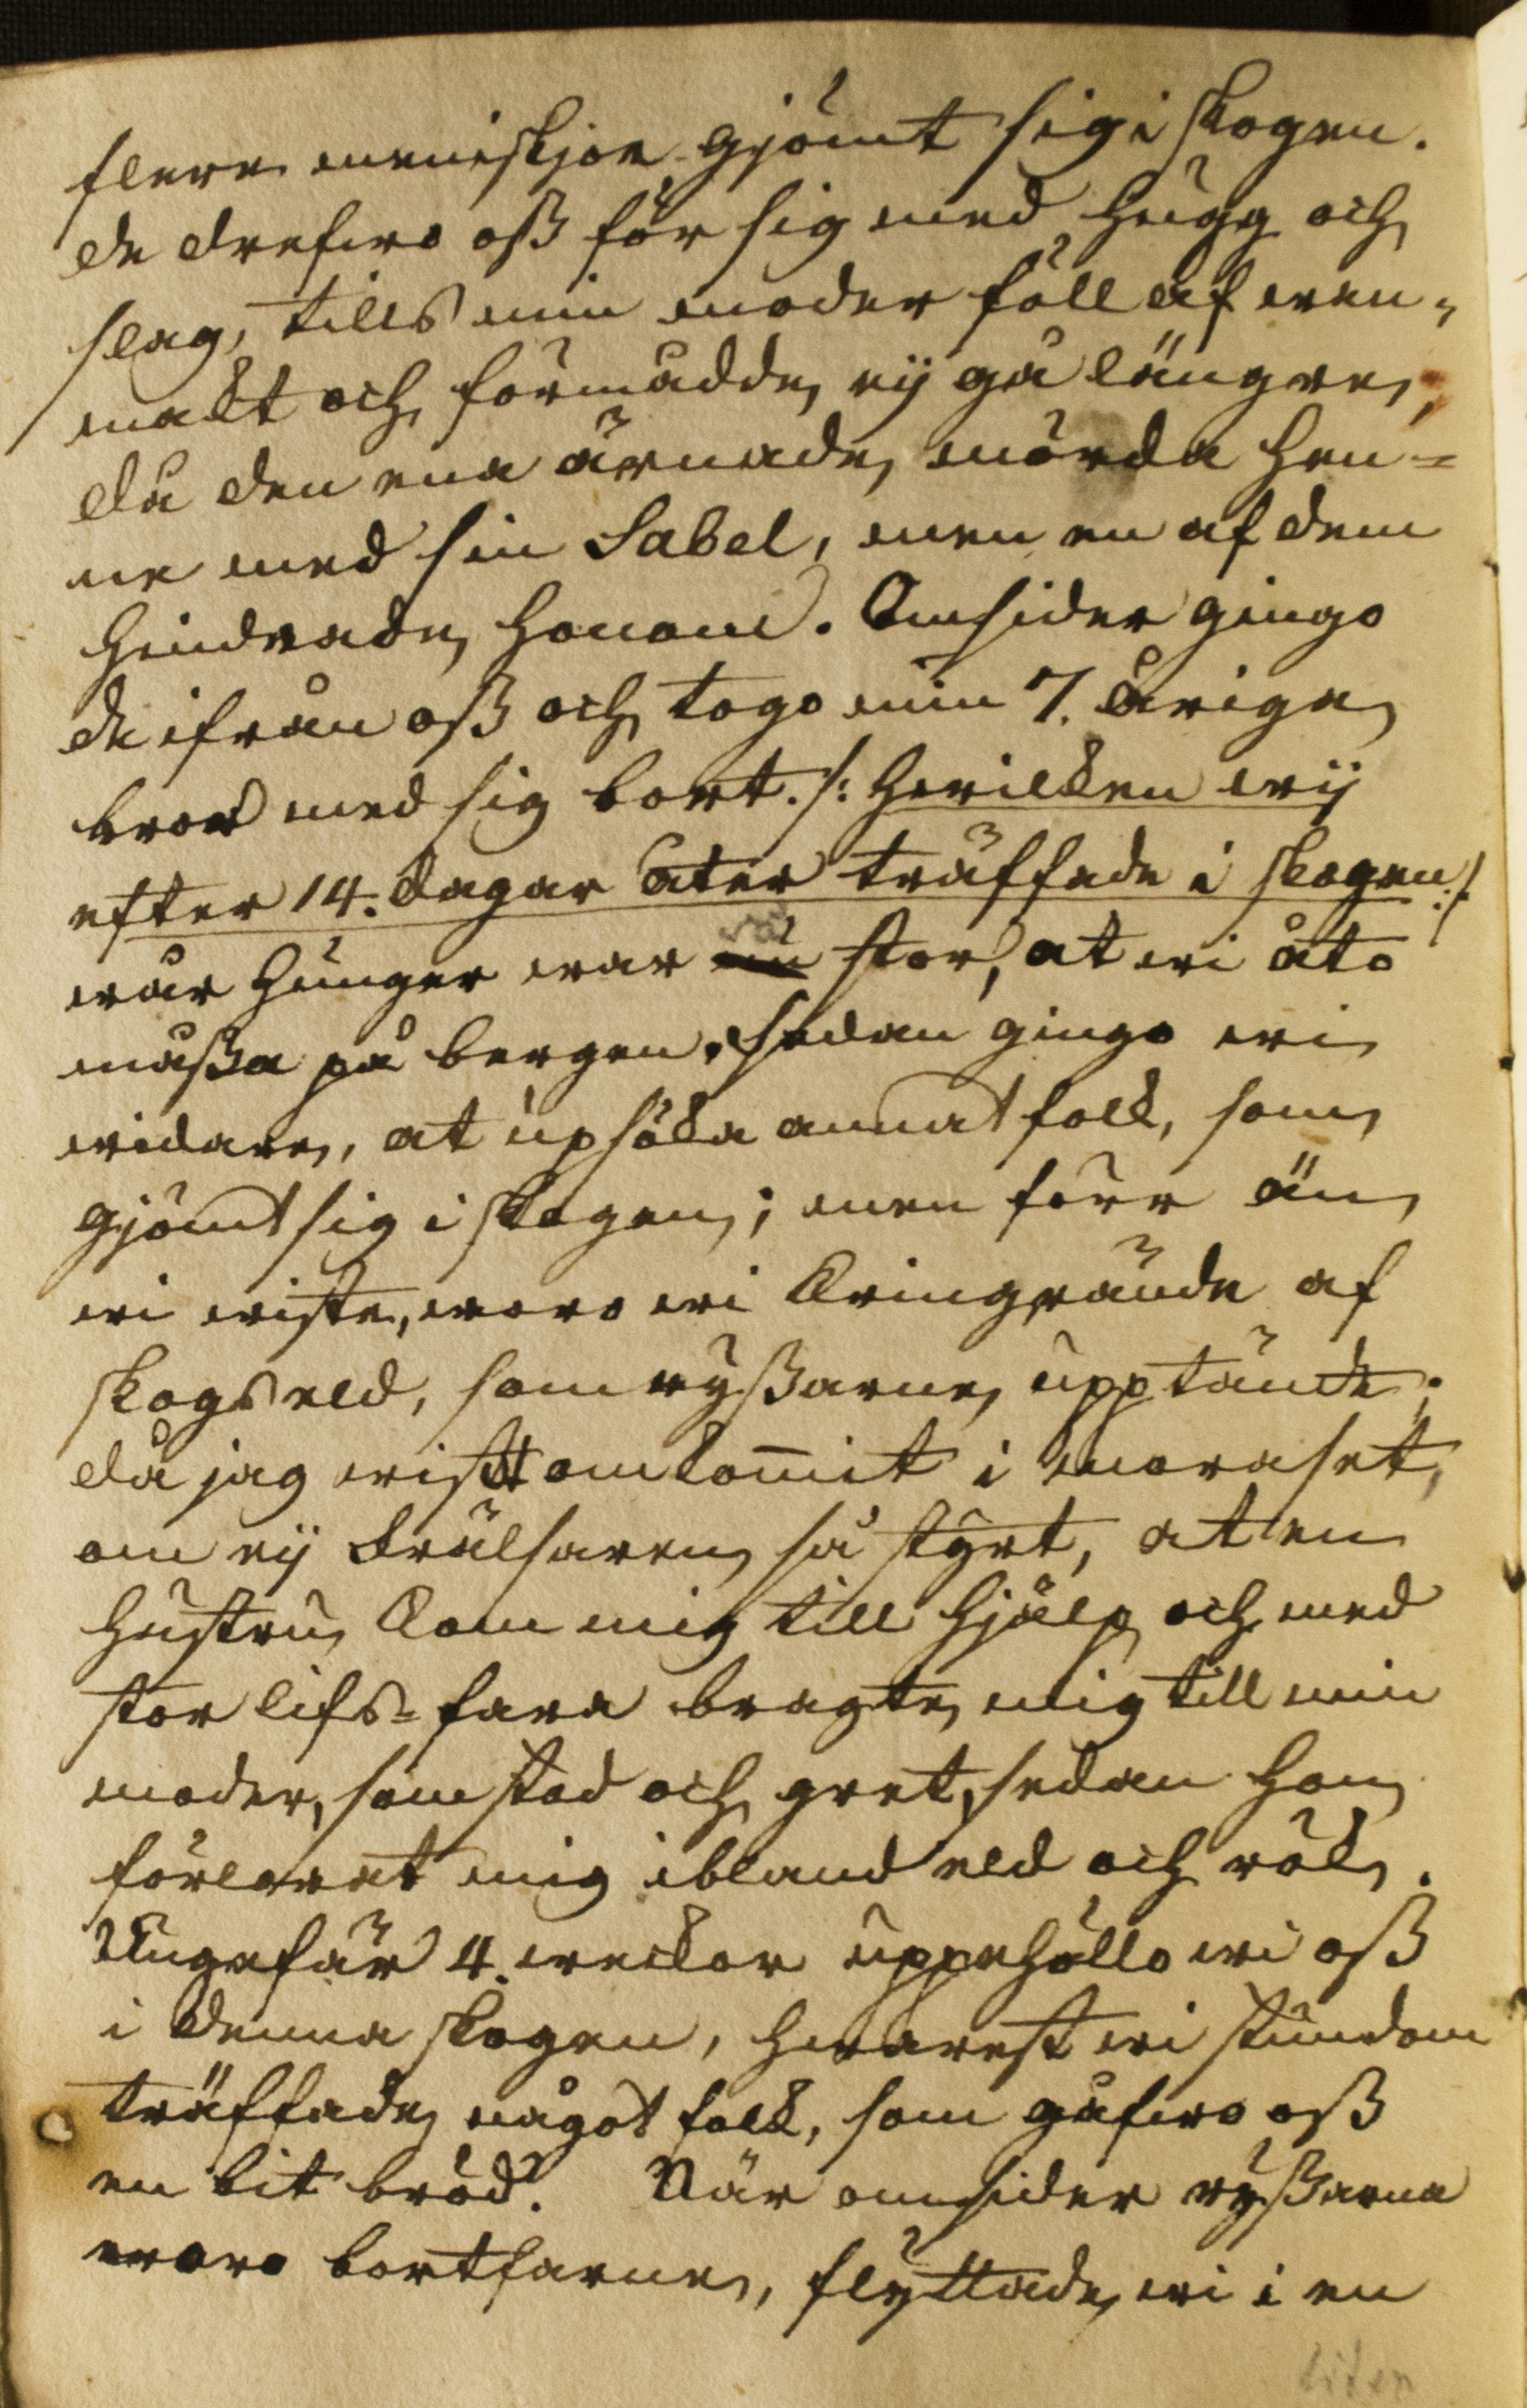 flere meniskjor gjömt sig i skogen.
de drefwo oss för sig med hugg och
slag, tills min moder föll af wan-
makt och förmådde ej gå längre,
då den ena ärnade mörda hen=
ne med sin Sabel, men en af dem
hindrade honom. Omsider gingo
de ifrån oss och togo min 7. åriga
bror med sig bort. /: hwilken wij
efter 14. dagar åter träffade i skogen :/
wår hunger war så stor, at wi åto
måssa på bergen. Sedan gingo wi
widare, at upsöka annat folk, som
gjömt sig i skogen; men förr än
wi wiste, woro wi kringrände af
skogs eld, som ryssarne upptände;
då jag wist omkommit i moraset,
om ej Frälsaren så styrt, at en
hustru kom mig till hjälp och med
stor lifs=fara bragte mig till min
moder, som stod och gret, sedan hon
förlorat mig ibland eld och rök.
Ungefär 4. weckor uppehöllo wi oss
i denna skogen, hwarest wi stundom
träffade något folk, som gåfwo oss
en bit bröd. När omsider ryssarna
woro bortfarne, flyttade wi i en
liten